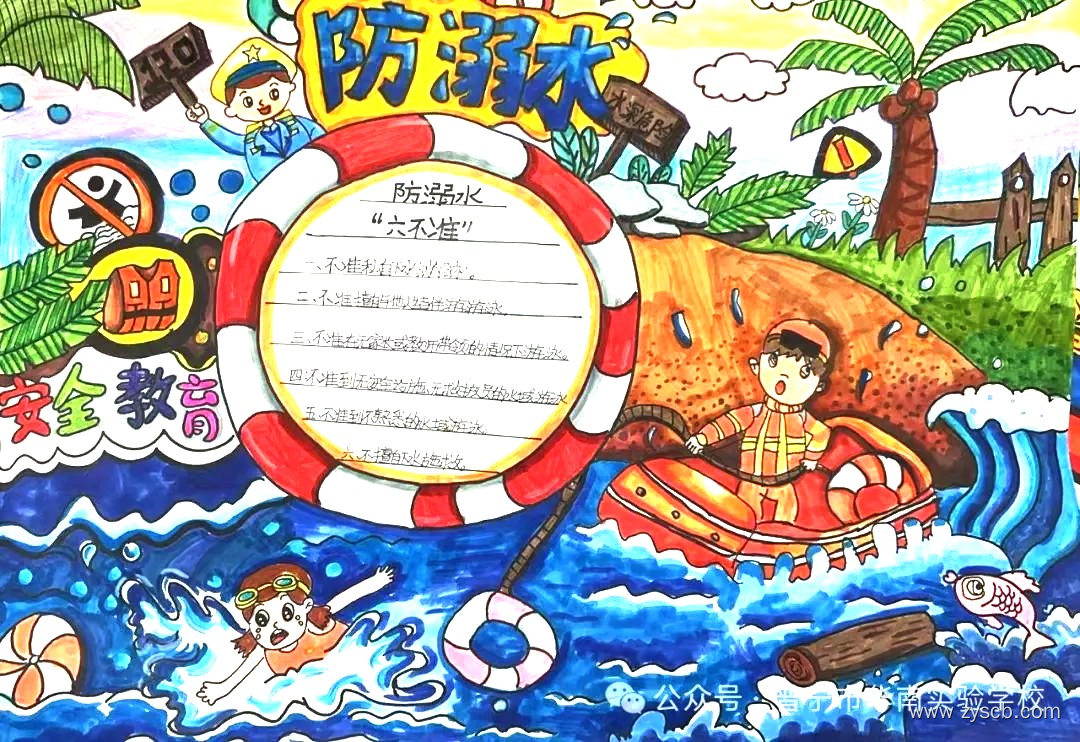 防溺水
水深危险
防溺水
“六不准”
一、不准私自下水游泳。
二、不准擅自与他人结伴游泳。
三、不准在无家长或教师带领的情况下游泳。
四、不准到无安全设施、无救援人员的水域游泳
五、不准到不熟悉的水域游泳。
六、不擅自下水施救。
安全教育
公众号 晋宁市华南实验学校
www.zyscb.com